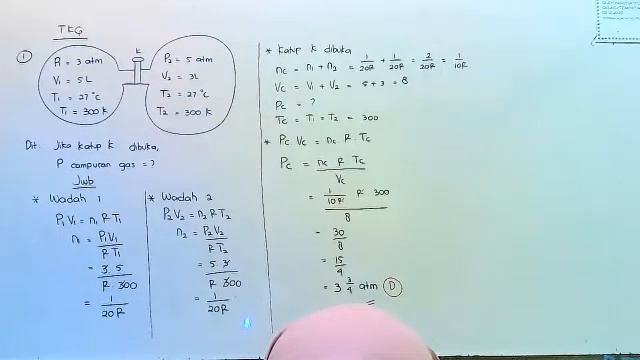 TKG
1
P₁ = 3 atm
V₁ = 5 L
T₁ = 27°C
T₁ = 300 K
K
P₂ = 5 atm
V₂ = 3L
T₂ = 27°C
T₂ = 300 K
Dit: Jika katup K dibuka,
P campuran gas = ?
Jwb
* Wadah 1
P₁V₁ = n₁ R T₁
n₁ = P₁V₁ / R T₁
= 3 . 5 / R . 300
= 1 / 20R
* Wadah 2
P₂V₂ = n₂ R T₂
n₂ = P₂V₂ / R T₂
= 5 . 3 / R 300
= 1 / 20R
* Katup K dibuka
nc = n₁ + n₂ = 1/20R + 1/20R = 2/20R = 1/10R
Vc = V₁ + V₂ = 5 + 3 = 8
Pc = ?
Tc = T₁ = T₂ = 300
* Pc Vc = nc . R . Tc
Pc = nc R Tc / Vc
= 1/10R R 300 / 8
= 30 / 8
= 15 / 4
= 3 3/4 atm D